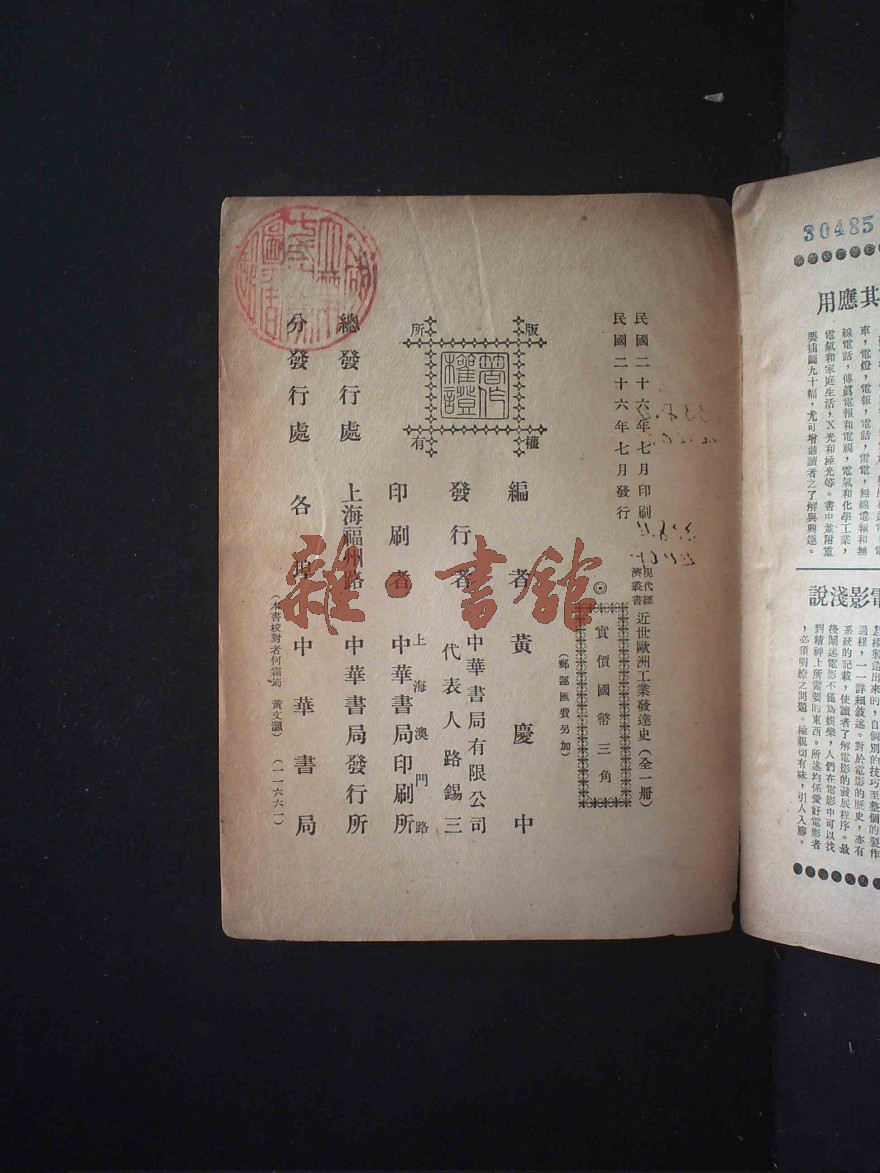 民國二十六年七月印刷
民國二十六年七月發行
現代經濟叢書
近世歐洲工業發達史(全一册)
◎實價國幣三角
(郵運匯費另加)
版權所有
著作權證
編者 黃慶中
發行者 中華書局有限公司
代表人路錫三
印刷者 上海澳門路
中華書局印刷所
總發行處 上海福州路 中華書局發行所
分發行處 各埠 中華書局
(本書校對者何霜 黃文灝)
(一一六六一)
雜·書館
30485
其應用
車,電燈,電報,電話,雷電,無線電報和無
線電話,傳眞電報和電視,電氣和化學工業,
電氣和家庭生活,X光和極光等。書中並附重
要插圖九十幅,尤可增進讀者之了解與興趣。
電影淺說
怎樣救造出來的,自個別的技巧至整個的製作
過程,一一詳細敘述。對於電影的歷史,亦有
系統的記載,使讀者了解電影的發展程序。最
後闡述電影不僅為娛樂,人們在電影中可以找
到精神上所需要的東西。所述均係愛好電影者
必須明瞭之問題。親切有味,引人入勝。